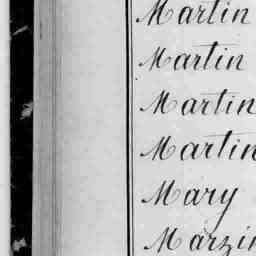 Martin
Martin
Martin
Martin
Mary